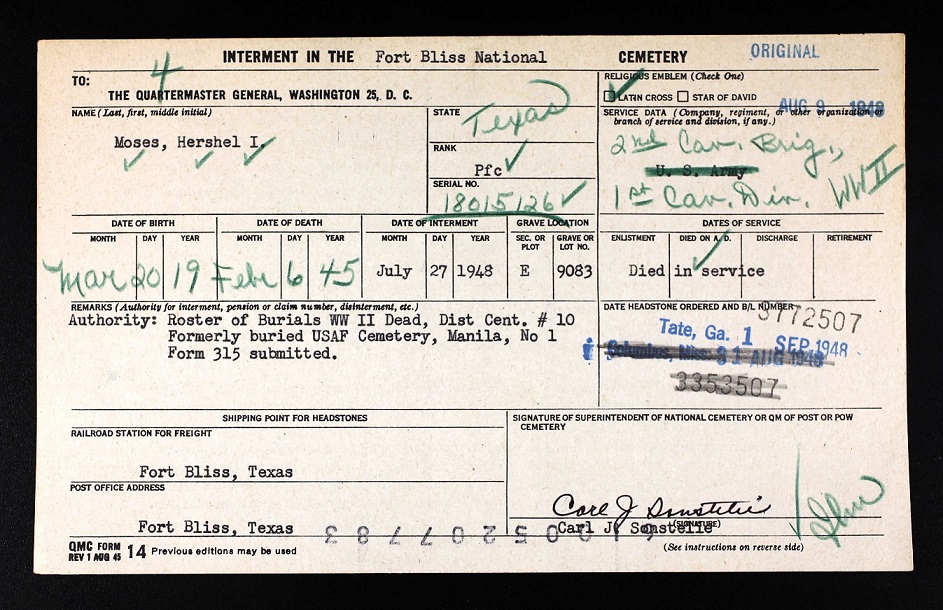 INTERMENT IN THE Fort Bliss National CEMETERY ORIGINAL
4
TO:
THE QUARTERMASTER GENERAL, WASHINGTON 25, D. C.
RELIGIOUS EMBLEM (Check One)
LATIN CROSS STAR OF DAVID
AUG 9 1948
NAME (Last, first, middle initial)
Moses, Hershel I.
STATE
Texas
RANK
Pfc
SERIAL NO.
18015126
SERVICE DATA (Company, regiment, or other organization or
branch of service and division, if any.)
2nd Cav. Brig.,
U. S. Army
1st Cav. Div. WW II
DATE OF BIRTH DATE OF DEATH DATE OF INTERMENT GRAVE LOCATION DATES OF SERVICE
MONTH DAY YEAR MONTH DAY YEAR MONTH DAY YEAR SEC. OR PLOT GRAVE OR LOT NO. ENLISTMENT DIED ON A. D. DISCHARGE RETIREMENT
Mar 20 19 Feb. 6 45 July 27 1948 E 9083 Died in service
REMARKS (Authority for interment, pension or claim number, disinterment, etc.)
Authority: Roster of Burials WW II Dead, Dist Cent. # 10
Formerly buried USAF Cemetery, Manila, No 1
Form 315 submitted.
DATE HEADSTONE ORDERED AND B/L NUMBER
3772507
Tate, Ga. 1 SEP 1948
Columbus, Miss. 31 AUG 1948
3353507
SHIPPING POINT FOR HEADSTONES
RAILROAD STATION FOR FREIGHT
Fort Bliss, Texas
POST OFFICE ADDRESS
Fort Bliss, Texas
SIGNATURE OF SUPERINTENDENT OF NATIONAL CEMETERY OR QM OF POST OR POW
CEMETERY
Carl J Sonstelie
Carl J. Sonstelie
(SIGNATURE)
QMC FORM
REV 1 AUG 45 14 Previous editions may be used
(See instructions on reverse side)